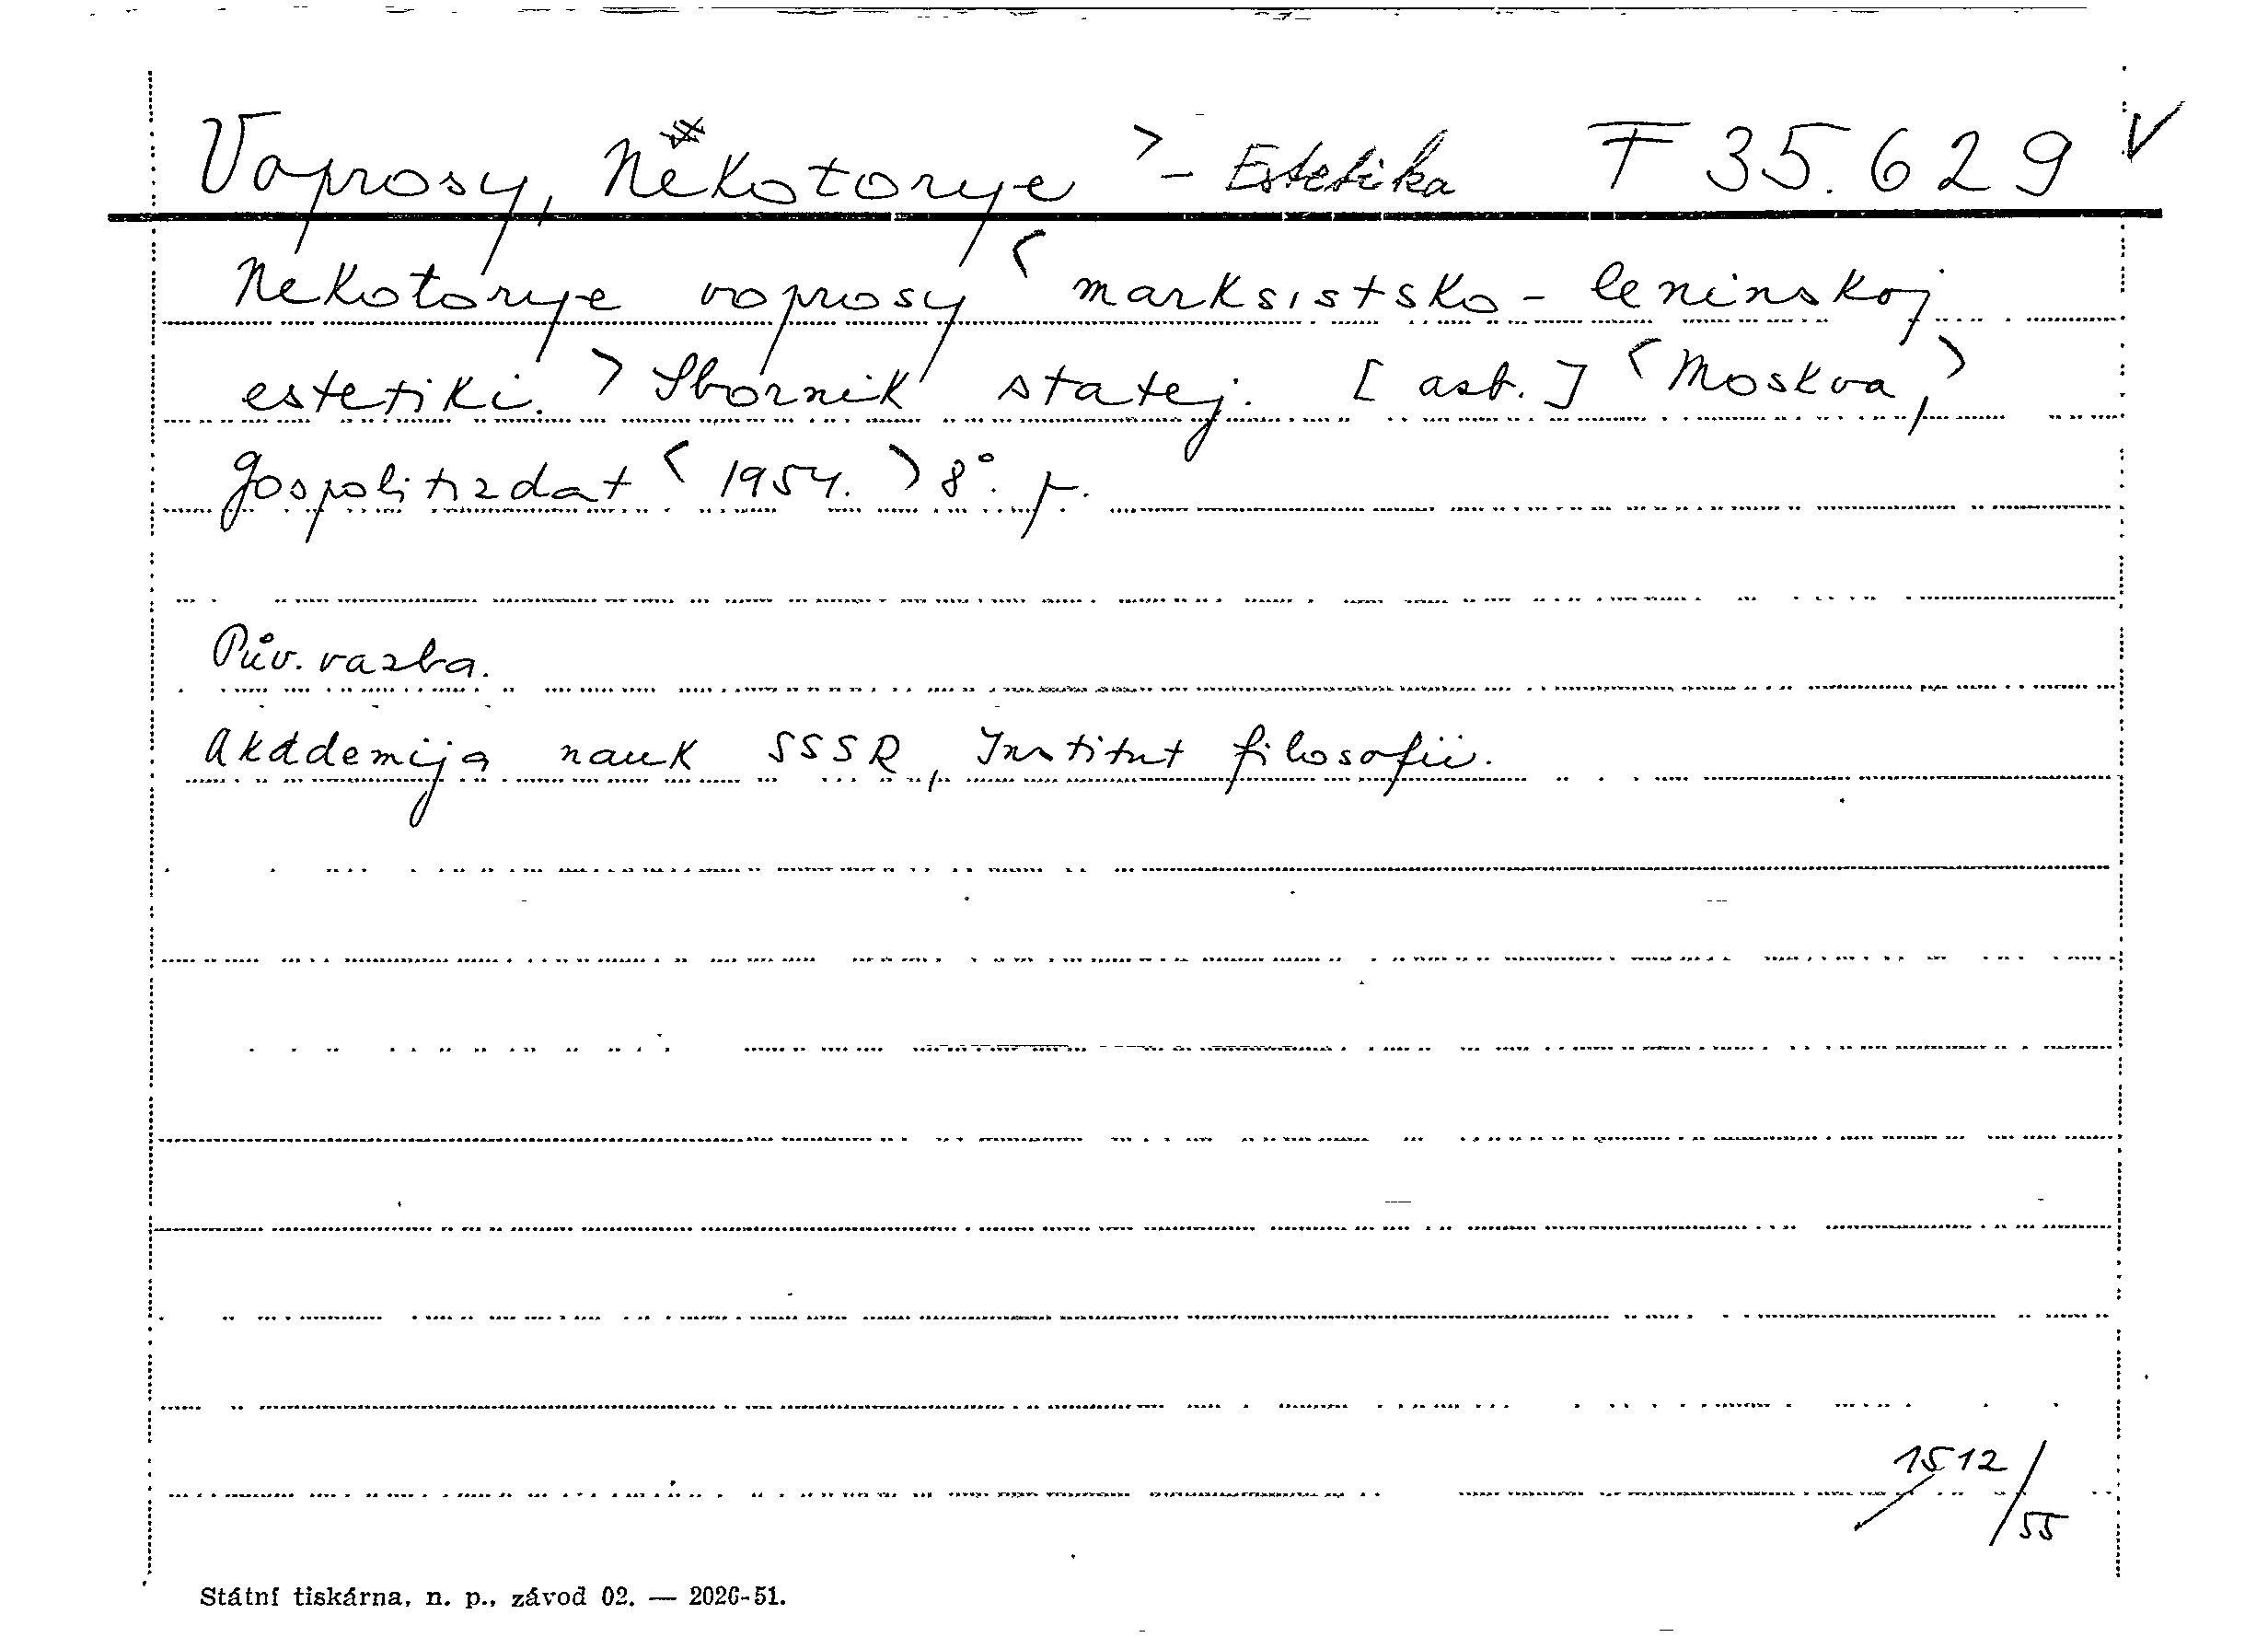 Voprosy, Někotorye > - Estetika F 35.629 V
Nekotorye voprosy < marksistsko - leninskoj
estetiki. > Sbornik statej. [ast.] < Moskva, >
Gospolitizdat < 1954. > 8°. p.
Pův. vazba.
Akademija nauk SSSR, Institut filosofii.
1512/55
Státní tiskárna, n. p., závod 02. — 2026-51.